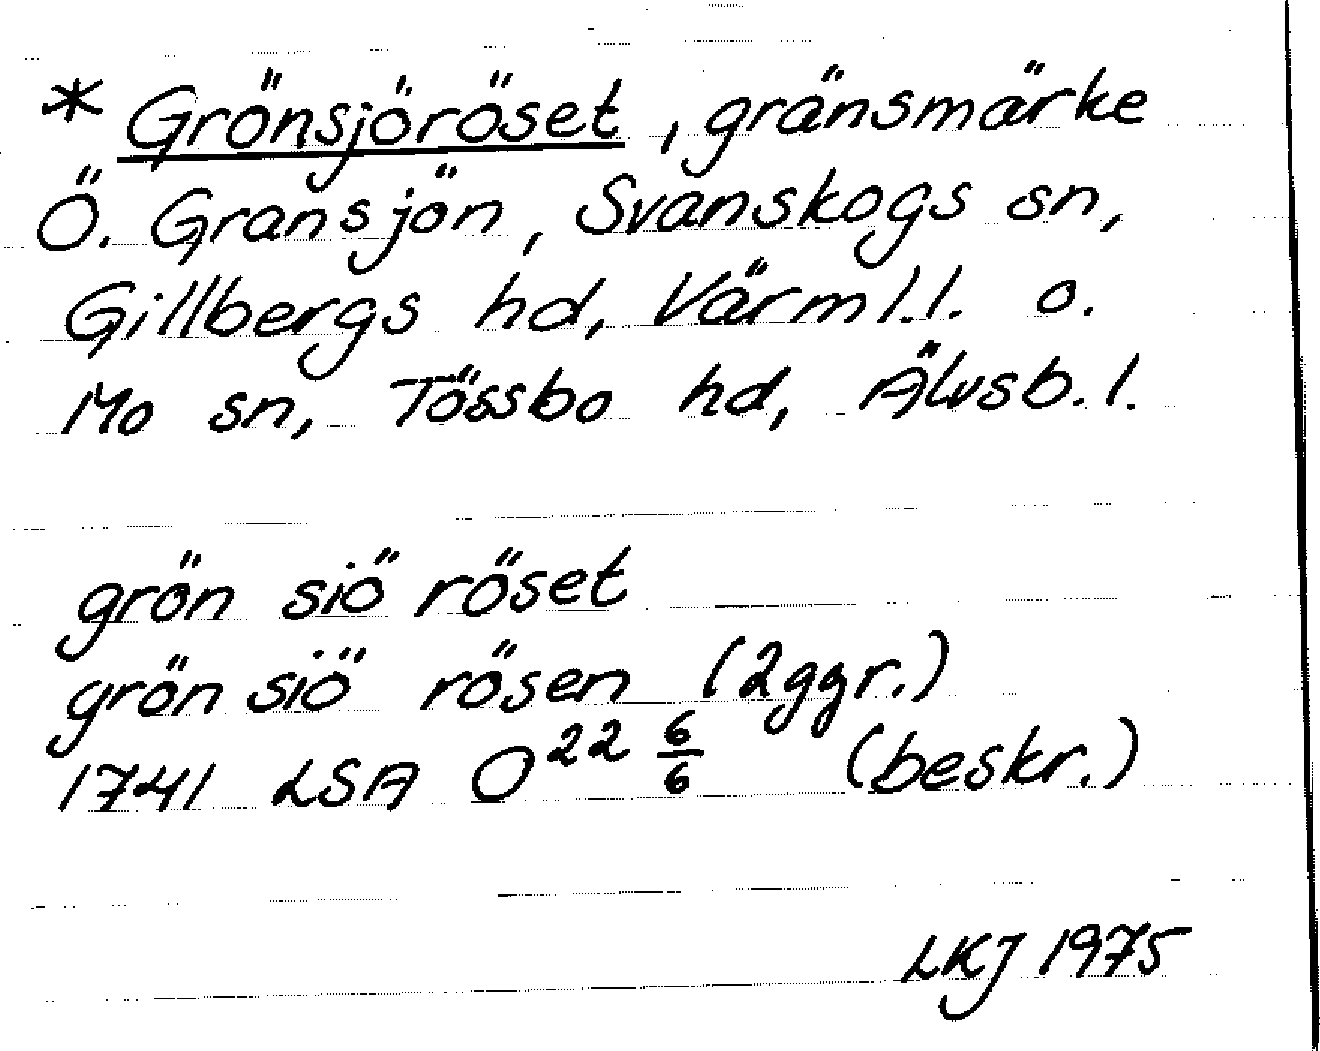 * Grönsjöröset, gränsmärke
Ö. Gransjön, Svanskogs sn,
Gillbergs hd, Värml.l. o.
Mo sn, Tössbo hd, Älvsb.l.
grön siö röset
grön siö rösen (2ggr.)
1741 LSA O²² 6/6 (beskr.)
LKJ 1975